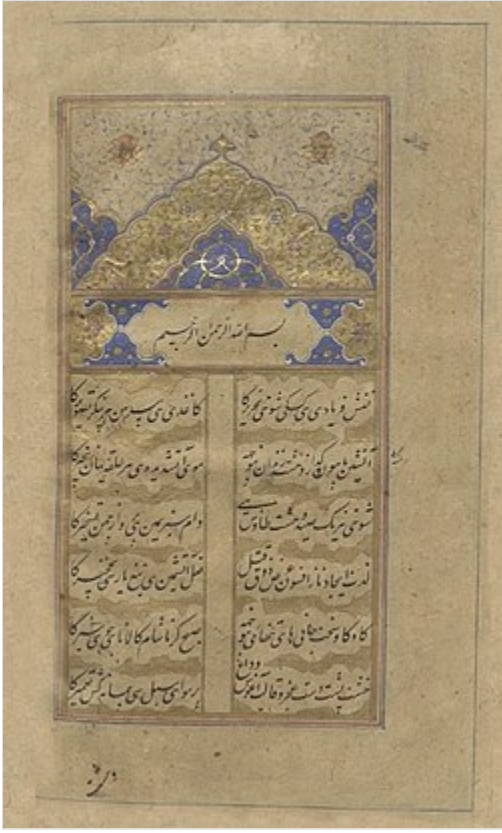 بسم الله الرحمن الرحیم
نقش فریادی ہی کسکی شوخی تحریر کا کاغذی ہی پیرہن ہر پیکر تصویر کا
آتشین پا ہون گداز وحشت زندان نپوچہہ موی آتش دیدہ ہی ہر حلقہ یہان زنجیر کا
شوخی نیرنگ صید وحشت طاؤس ہی دام سبزہ مین ہی پرواز چمن تسخیر کا
لذت ایجاد ناز افسون عرض ذوق قتل نعل آتش مین ہی تیغ یار سی نخچیر کا
کاو کاو سخت جانی ہای تنہائی نپوچہہ صبح کرنا شام کا لانا ہی جوی شیر کا
خشت پشت دست عجز و قالب آغوش وداع پر ہوا ہی سیل سی پیمانہ کس تعمیر کا